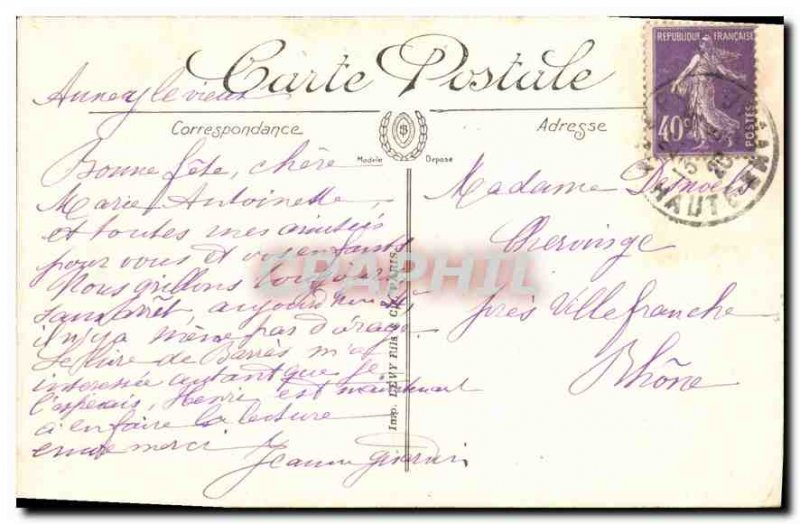 Carte Postale
Correspondance
Adresse
Modèle Déposé
REPUBLIQUE FRANÇAISE
40c
POSTES
HAUTE
Annecy le vieux
Bonne fête, chère
Marie Antoinette
et toutes mes amitiés
pour vous et vos enfants
Nous grillons toujours
sans arrêt, aujourd'hui
il n'y a même pas d'orage
Le livre de Barrès m'a
interessée autant que je
l'espérais, Henri est maintenant
à en faire la lecture
encore merci
Jeanne
Madame
Chervinge
près Villefranche
Rhône
Imp. LEVY Fils & Cie PARIS
CPAPHIL